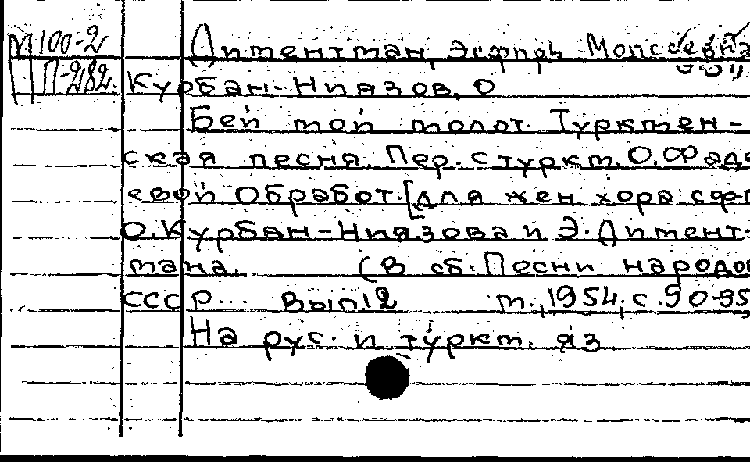 М 100-2
П-282.
Диментман, Эсфирь Моисеевна
Курбан-Ниязов, О
Бей мой молот. Туркмен-
ская песня. Пер. с туркм. О. Фаде
евой Обработ. [для жен хора сф-п
О. Курбан-Ниязова и Э. Димент-
мана. (В сб. Песни народов
СССР... Вып. 12 м., 1954, с. 90-95
На рус. и туркм. яз